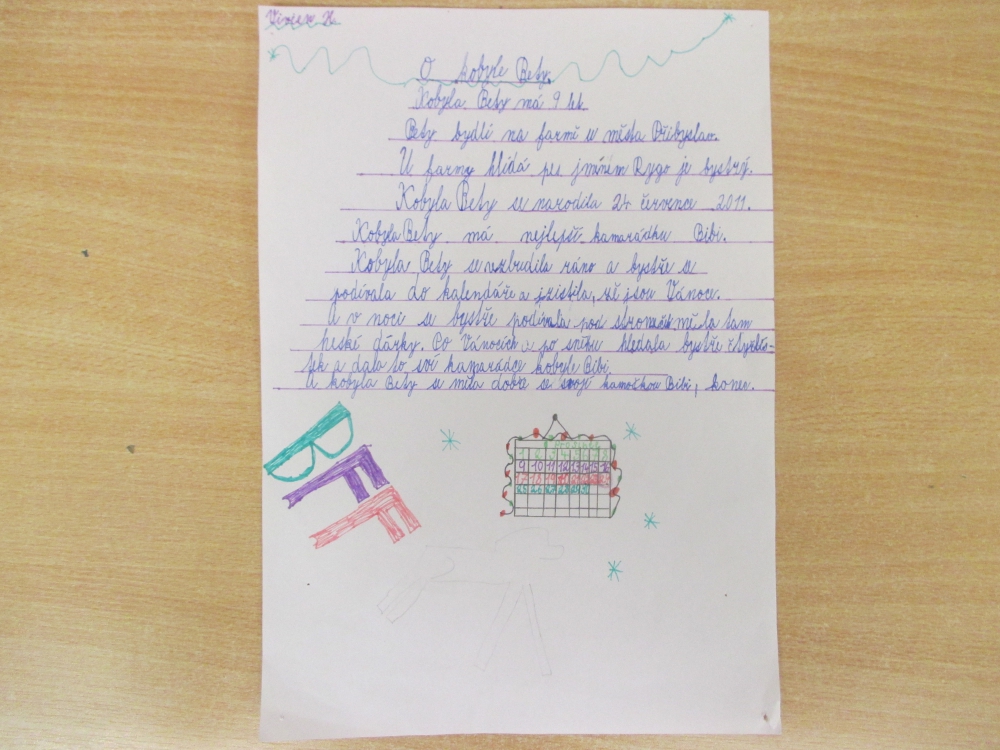 O kobyle Bety.
Kobyla Bety má 9 let
Bety bydlí na farmě u města Přibyslav.
U farmy hlídá pes jménem Rygo je bystrý.
Kobyla Bety se narodila 24. července 2011.
Kobyla Bety má nejlepší kamarádku Bibi.
Kobyla Bety se vzbudila ráno a bystře se
podívala do kalendáře a zjistila, že jsou Vánoce.
A v noci se bystře podívala pod stromeček měla tam
heské dárky. Po Vánocích v po sněhu hledala bystře čtyřlís-
tek a dala to své kamarádce kobyle Bibi.
A kobyla Bety se měla dobře se svojí kamoškou Bibi, konec.
9 10 11 12 13 14 15 16